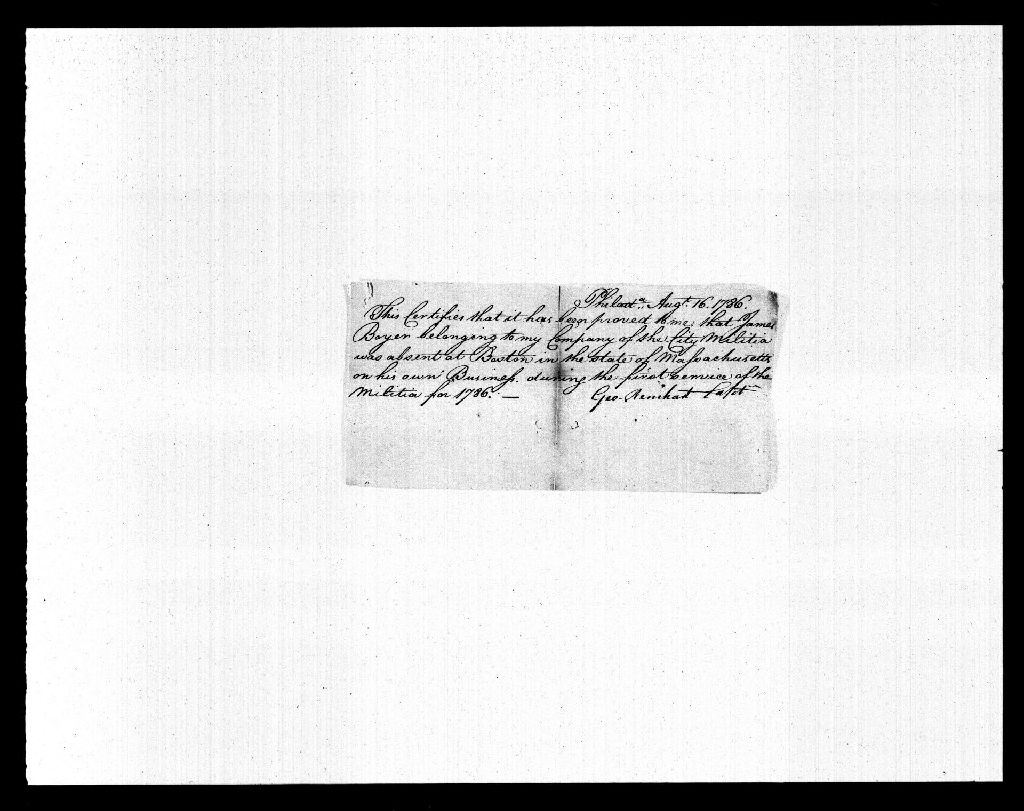 Philada. Augt. 16. 1786.
This Certifies that it has been proved to me, that James
Boyer belonging to my Company of the City Militia
was absent at Boston in the State of Massachusetts
on his own Business. during the first service of the
Militia for 1786. —
Geo. Reinhart Capt